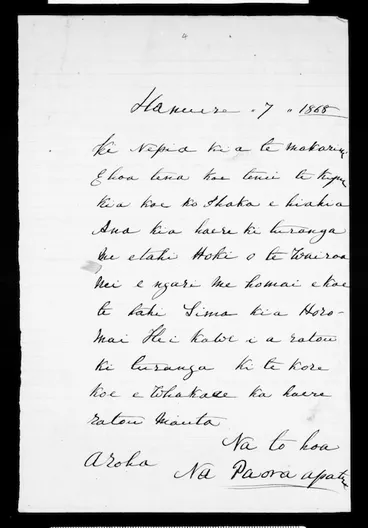 4
Hanuere . 7 . 1868
Ki Nepia ki a te makarini
E hoa tena koe tenei te kupu
kia koe ko Ihaka e hiahia
Ana kia haere ki turanga
me etahi Hoki o te Wairoa
Nei e ngari me homai e koe
te tahi Tima kia Horo-
mai Hei kawe i a ratou
ki turanga ki te kore
koe e Whakaae ka haere
ratou mauta
Na to hoa
Aroha
Na Paora apatu